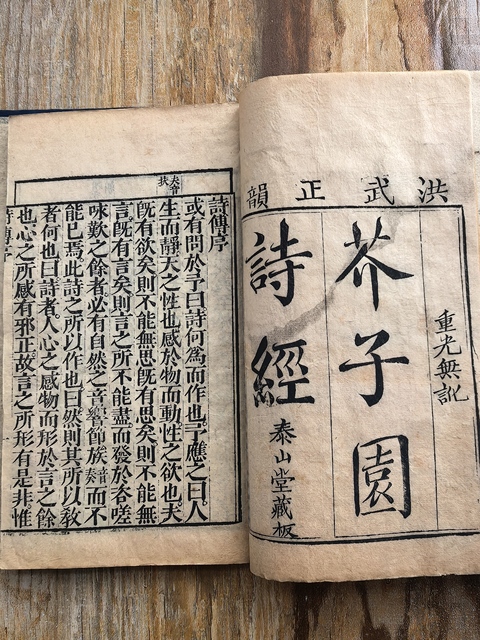 洪武正韻
重光無訛
芥子園
詩經
泰山堂藏板
夫音扶
詩傳序
或有問於予曰詩何爲而作也予應之曰人
生而靜天之性也感於物而動性之欲也夫
旣有欲矣則不能無思旣有思矣則不能無
言旣有言矣則言之所不能盡而發於咨嗟
咏歎之餘者必有自然之音響節族音奏而不
能已焉此詩之所以作也曰然則其所以敎
者何也曰詩者人心之感物而形於言之餘
也心之所感有邪正故言之所形有是非惟
詩傳序